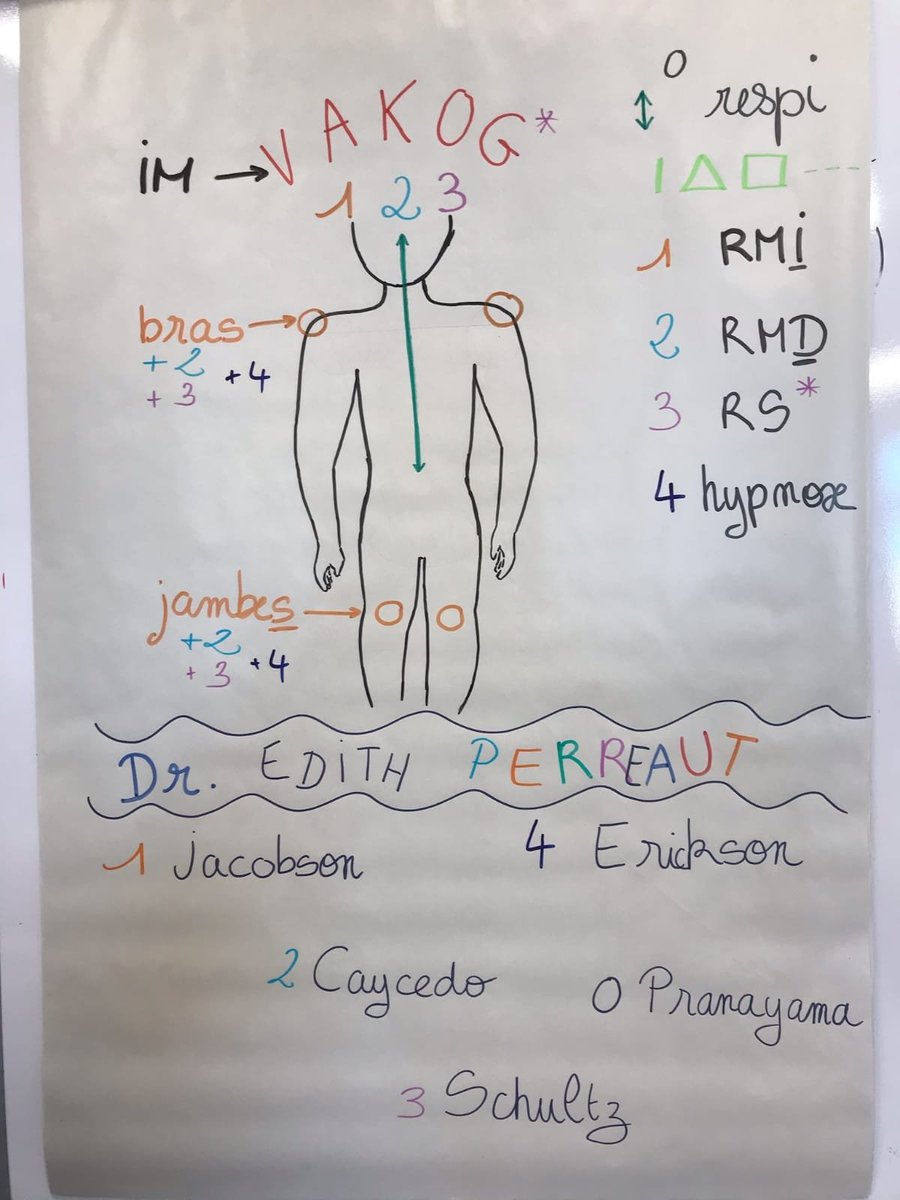 0 respi
VAKOG*
iM → VAKOG*
1 2 3
1 RMi
bras →
+2
+3 +4
2 RMD
3 RS*
4 hypnose
jambes →
+2
+3 +4
Dr. EDiTH PERREAUT
1 Jacobson
4 Erickson
2 Caycedo
0 Pranayama
3 Schultz